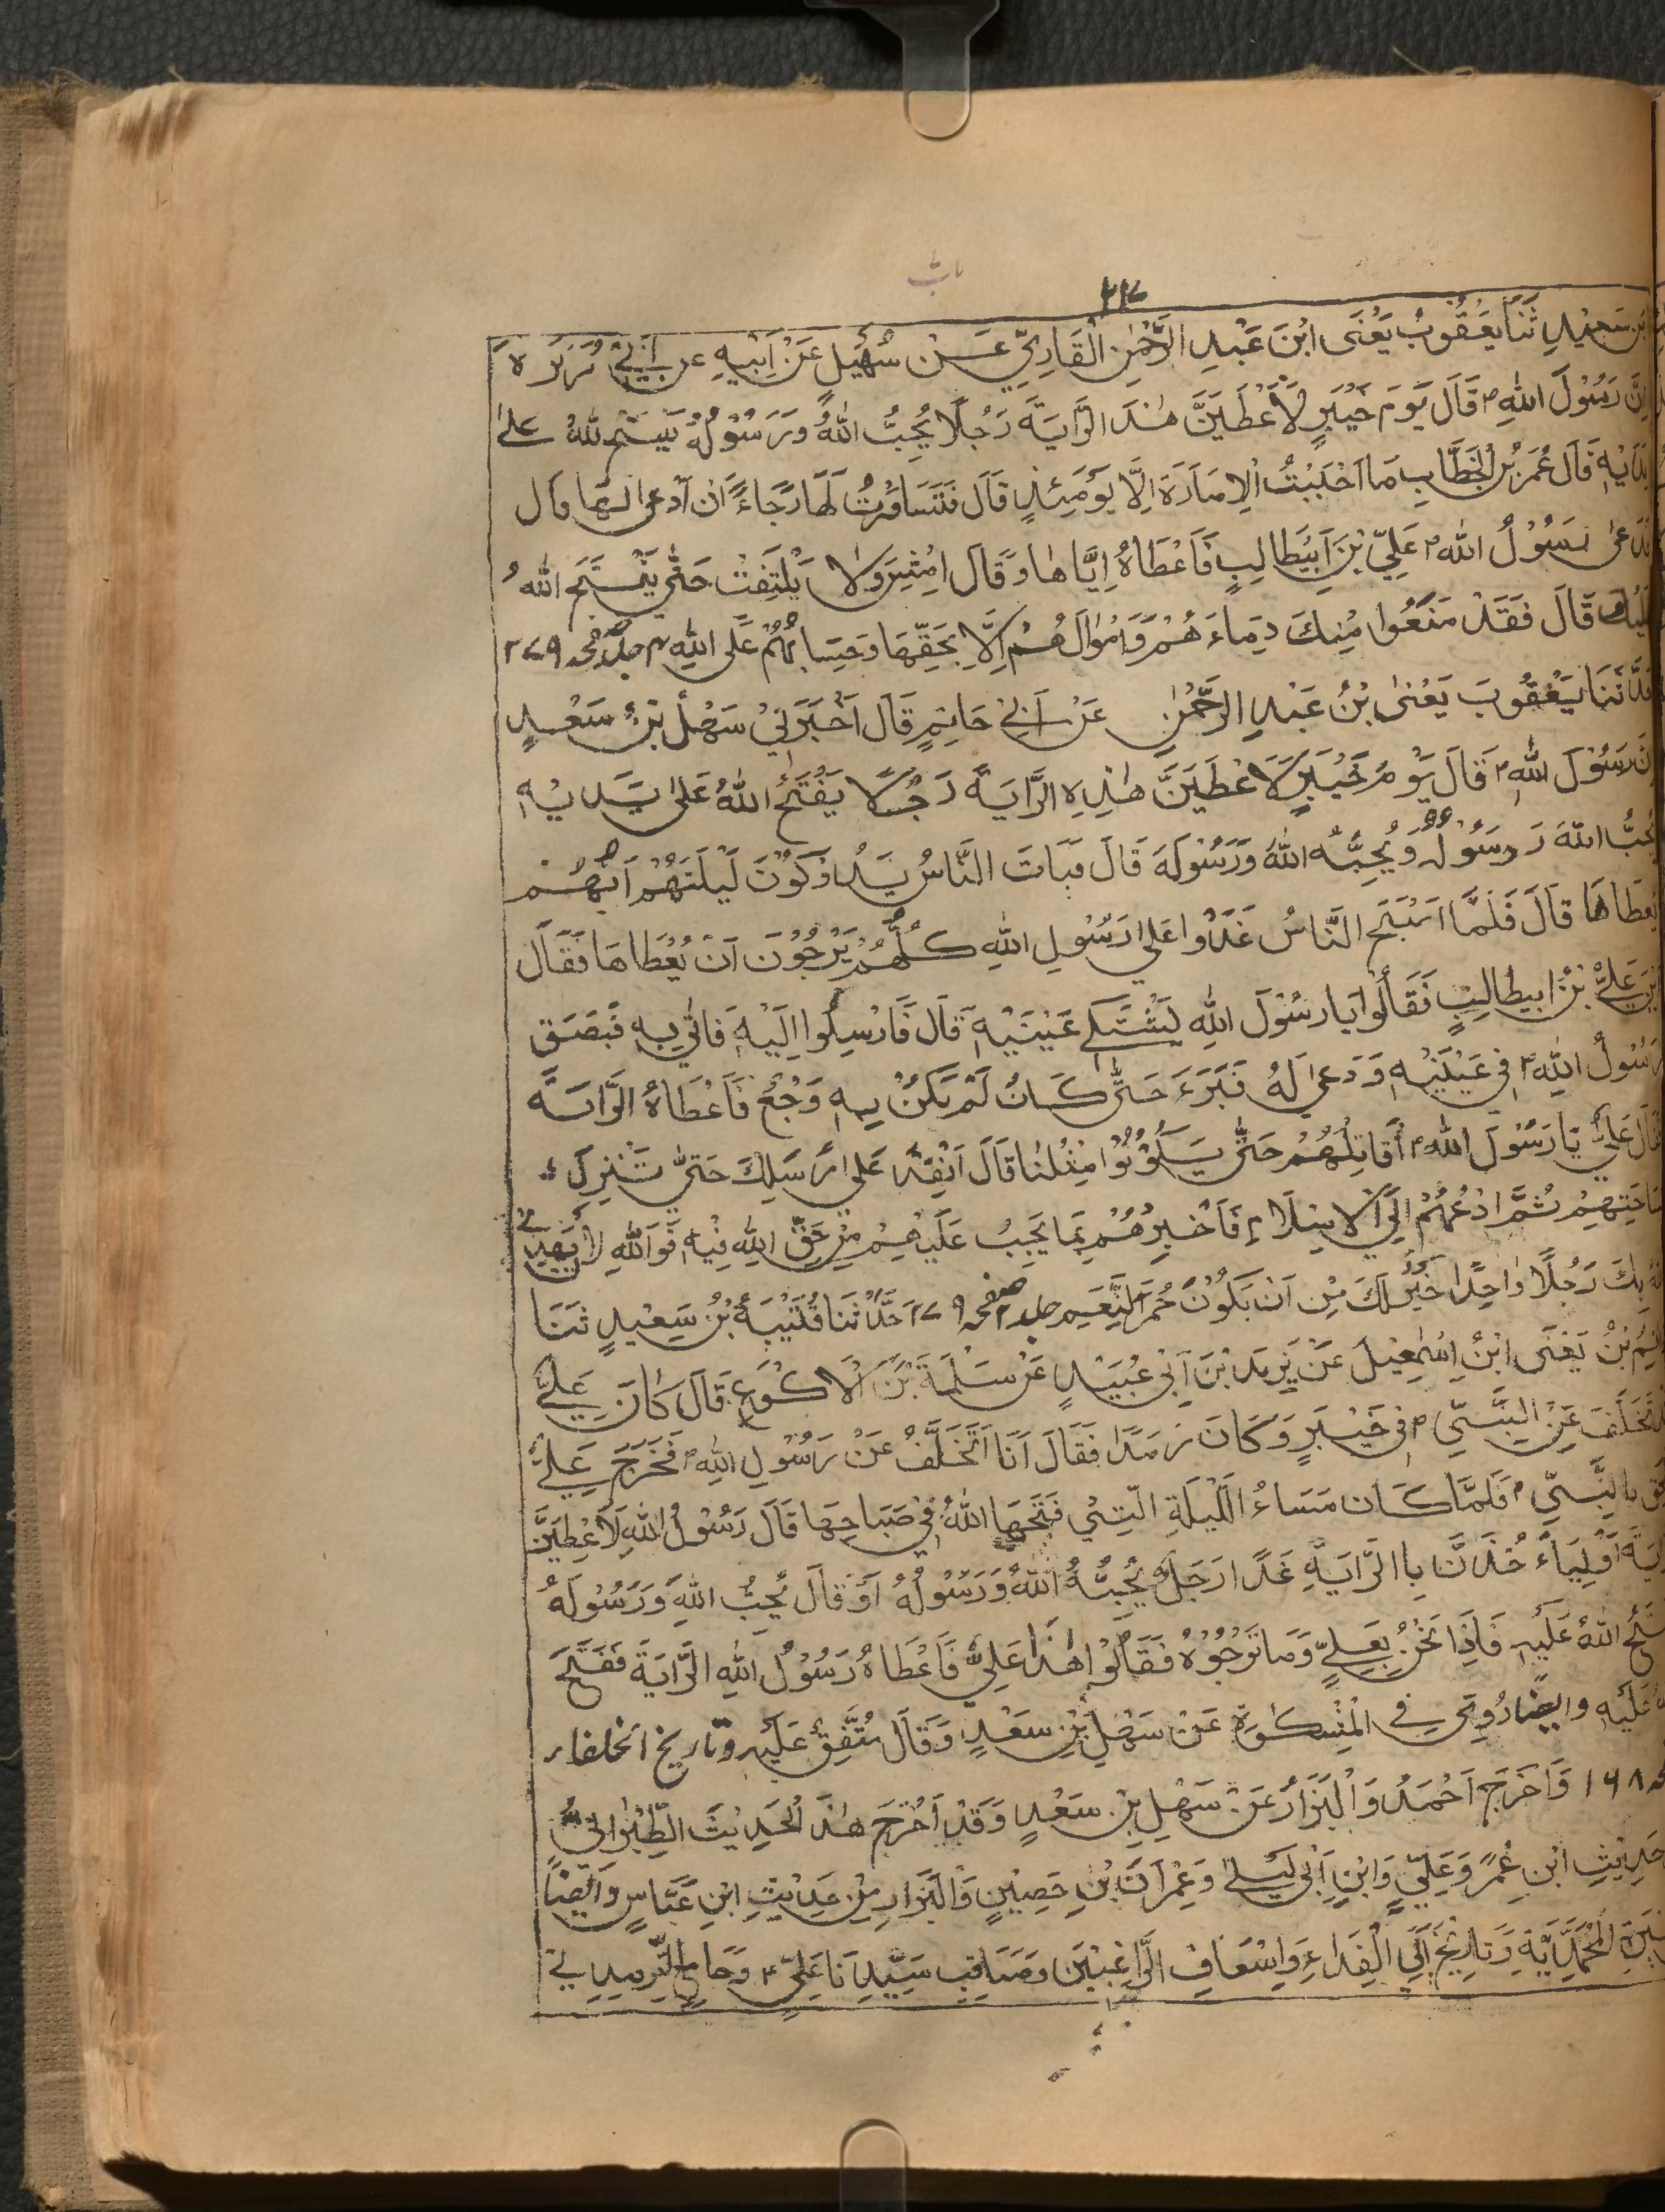 باب
٢١٧
بن سعيد ثنا يعقوب يعنى ابن عبد الرحمن القاري عن سهيل عن ابيه عن ابي هريرة
ان رسول الله ؐ قال يوم خيبر لاعطين هذا الراية رجلا يحب الله ورسوله يفتح الله على
يديه قال عمر بن الخطاب ما احببت الامارة الا يومئذ قال فتساورت لها رجاء ان ادعى لها قال
فدعى رسول الله ؐ علي بن ابيطالب فاعطاه اياها وقال امش ولا يلتفت حتى يفتح الله
عليك قال فقد منعوا منك دماءهم واموالهم الا بحقها وحسابهم على الله جلد ٢ صفحه ٢٧٩
حدثنا يعقوب يعنى بن عبد الرحمن عن ابي حاتم قال اخبرني سهل بن سعد
ان رسول الله ؐ قال يوم خيبر لاعطين هذه الراية رجلا يفتح الله على يديه
يحب الله ورسوله ويحبه الله ورسوله قال فبات الناس يدوكون ليلتهم ايهم
يعطاها قال فلما اصبح الناس غدوا على رسول الله كلهم يرجون ان يعطاها فقال
اين علي بن ابيطالب فقالوا يا رسول الله يشتكي عينيه قال فارسلوا اليه فاتي به فبصق
رسول الله ؐ في عينيه ودعى له فبرء حتى كان لم يكن به وجع فاعطاه الراية
فقال علي يا رسول الله ؐ اقاتلهم حتى يكونوا مثلنا قال انفذ على رسلك حتى تنزل
بساحتهم ثم ادعهم الى الاسلام فاخبرهم بما يجب عليهم من حق الله فيه فوالله لان يهدي
الله بك رجلا واحدا خير لك من ان يكون حمر النعم جلد ٢ صفحه ٢٧٩ حدثنا قتيبة بن سعيد ثنا
حاتم بن يعنى ابن اسمعيل عن يزيد بن ابي عبيد عن سلمة بن الاكوع قال كان علي
قد تخلف عن النبي ؐ في خيبر وكان رمدا فقال انا اتخلف عن رسول الله ؐ فخرج علي
فلحق بالنبي ؐ فلما كان مساء الليلة التي فتحها الله في صباحها قال رسول الله لاعطين
الراية او لياخذن بالراية غدا رجل يحبه الله ورسوله او قال يحب الله ورسوله
يفتح الله عليه فاذا نحن بعلي وما نرجوه فقالوا هذا علي فاعطاه رسول الله الراية ففتح
الله عليه وايضا روي في المشكوة عن سهل بن سعد وقال متفق عليه وتاريخ الخلفاء
صفحه ١٦٨ واخرج احمد والبزار عن سهل بن سعد وقد اخرج هذا الحديث الطبراني
حديث ابن عمر وعلي وابن ابي ليلى وعمران بن حصين والبزار من حديث ابن عباس وايضا
سيرة المحمدية وتاريخ ابي الفداء واسعاف الراغبين ومناقب سيدنا علي ؑ وجامع الترمذي